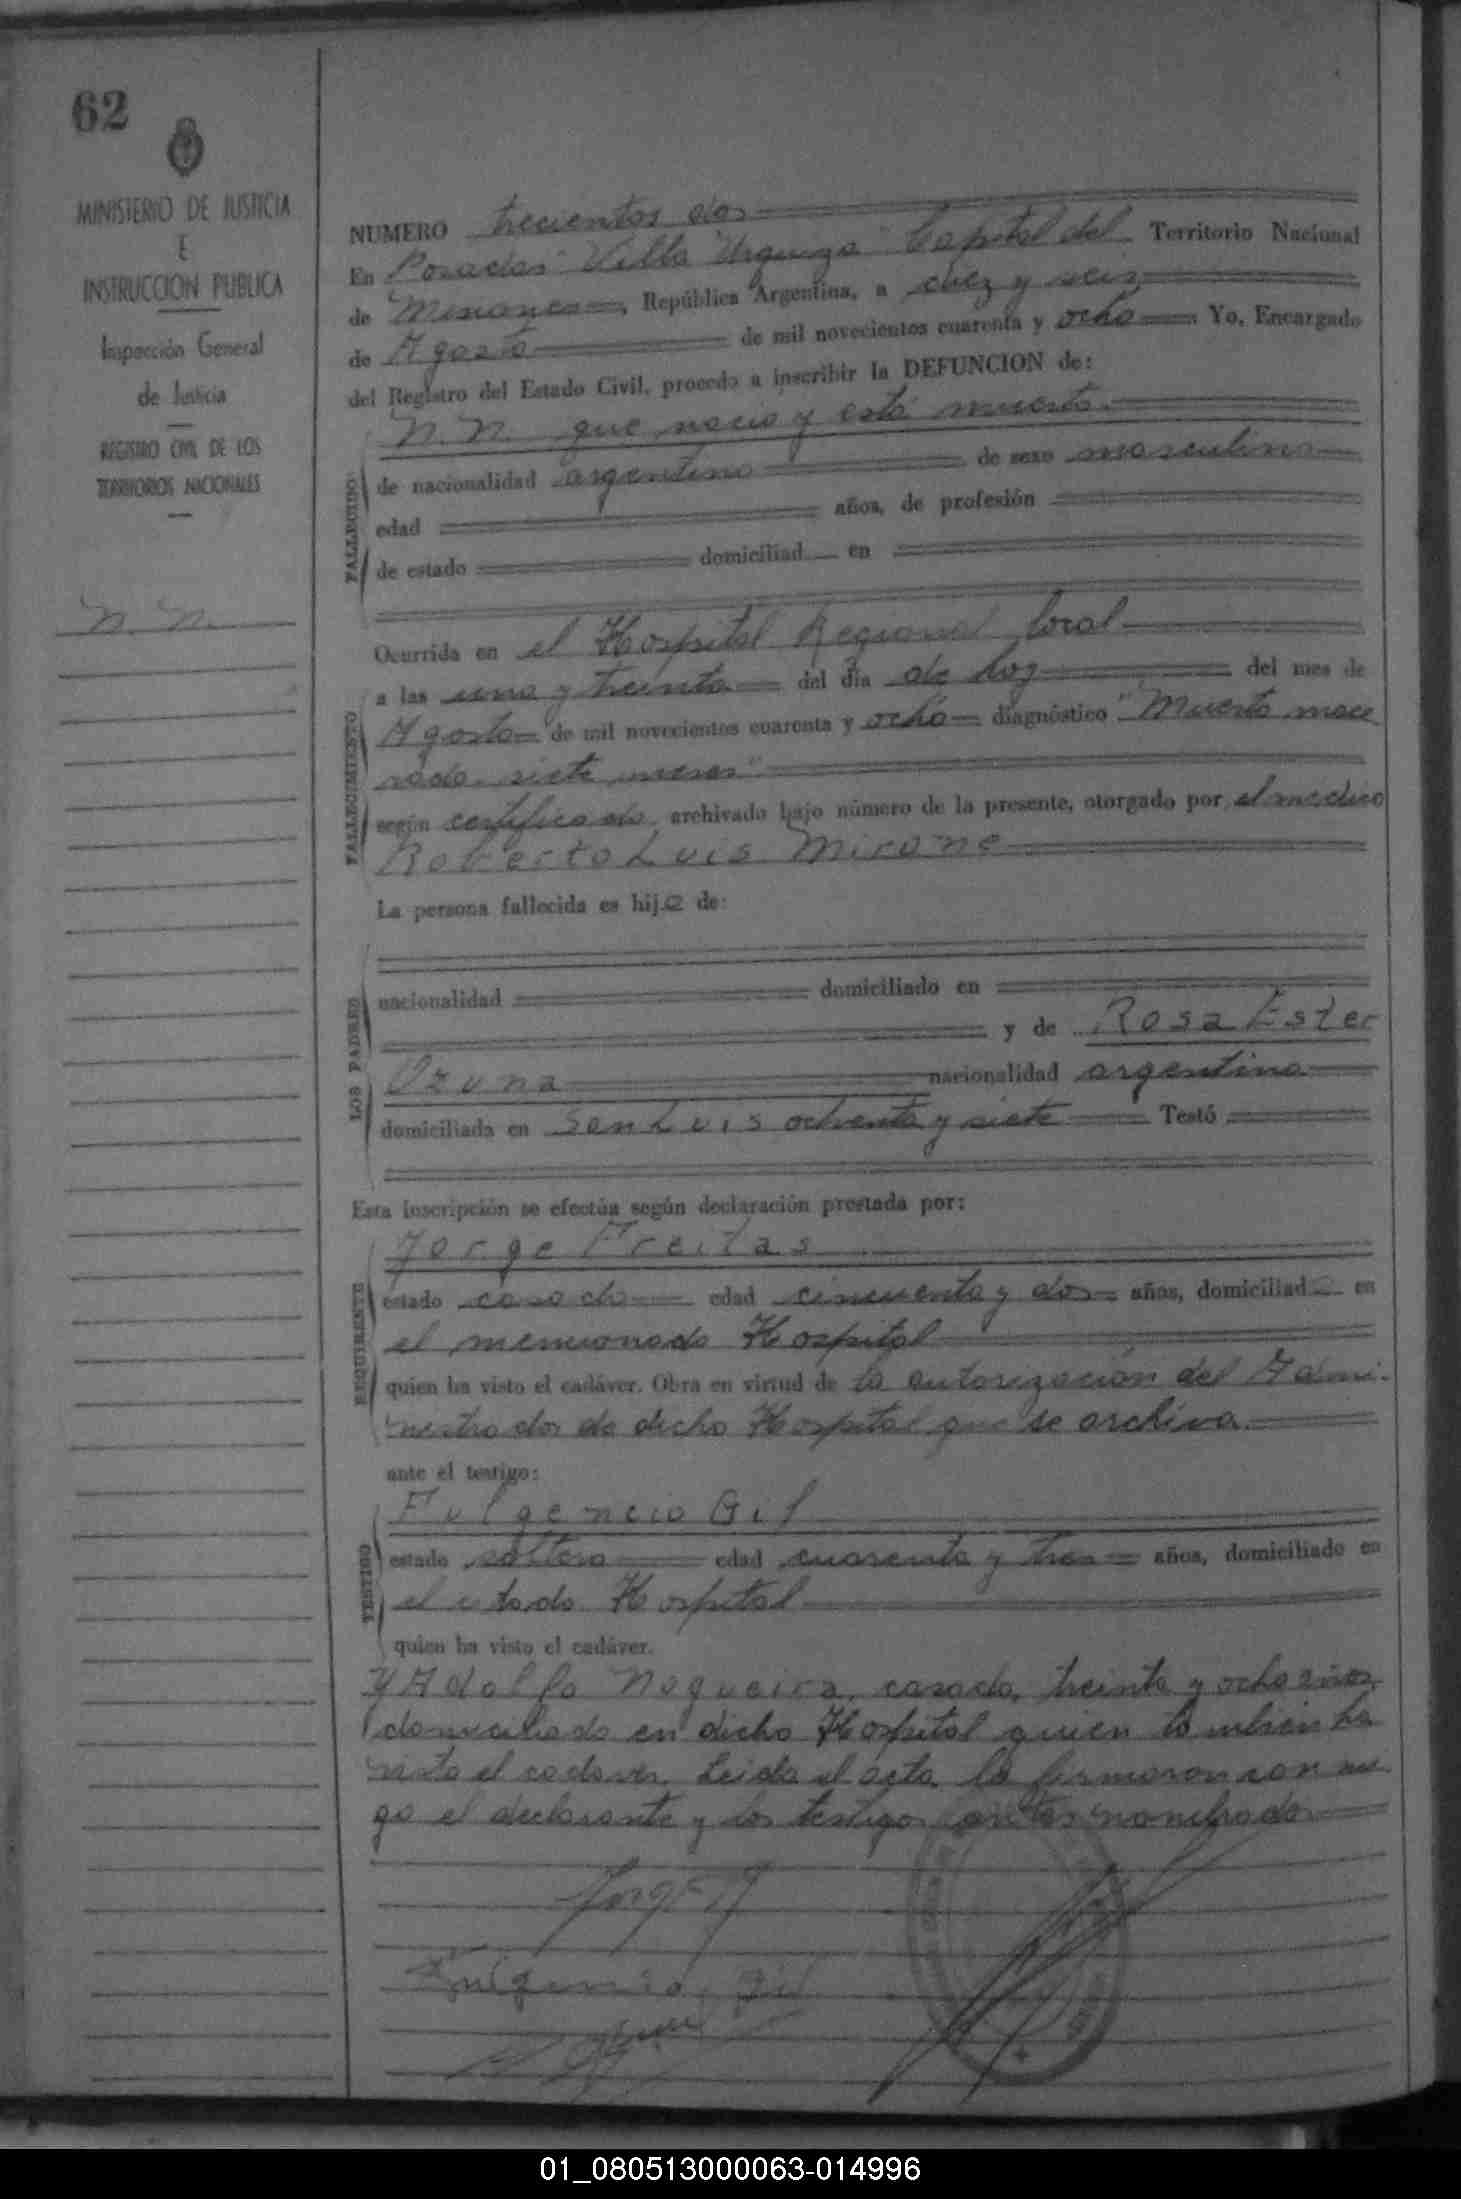 62
MINISTERIO DE JUSTICIA
E
INSTRUCCION PUBLICA
Inspección General
de Justicia
REGISTRO CIVIL DE LOS
TERRITORIOS NACIONALES
N. N.
NUMERO trecientos dos
En Posadas "Villa Urquiza" Capital del Territorio Nacional
de Misiones, República Argentina, a diez y seis
de Agosto de mil novecientos cuarenta y ocho Yo, Encargado
del Registro del Estado Civil, procedo a inscribir la DEFUNCION de:
N. N. que nació y está muerto.
FALLECIDO
de nacionalidad argentino de sexo masculino
edad años, de profesión
de estado domiciliad en
Ocurrida en el Hospital Regional local
FALLECIMIENTO
a las una y treinta del día de hoy del mes de
Agosto de mil novecientos cuarenta y ocho diagnóstico "Muerto mace
rado siete meses"
según certificado, archivado bajo número de la presente, otorgado por el médico
Roberto Luis Mirone
La persona fallecida es hijo de:
LOS PADRES
nacionalidad domiciliado en
y de Rosa Ester
Ozuna nacionalidad argentina
domiciliada en San Luis ochenta y siete Testó
Esta inscripción se efectúa según declaración prestada por:
REQUIRENTE
Jorge Freitas
estado casado edad cincuenta y dos años, domiciliado en
el mencionado Hospital
quien ha visto el cadáver. Obra en virtud de la autorización del Admi-
nistrador de dicho Hospital que se archiva
ante el testigo:
TESTIGO
Fulgencio Gil
estado soltero edad cuarenta y tres años, domiciliado en
el citado Hospital
quien ha visto el cadáver.
y Adolfo Nogueira, casado, treinta y ocho años,
domiciliado en dicho Hospital quien también ha
visto el cadáver. Leída el acta la firmaron con mi-
go el declarante y los testigos antes nombrados
Fulgencio Gil
01_080513000063-014996